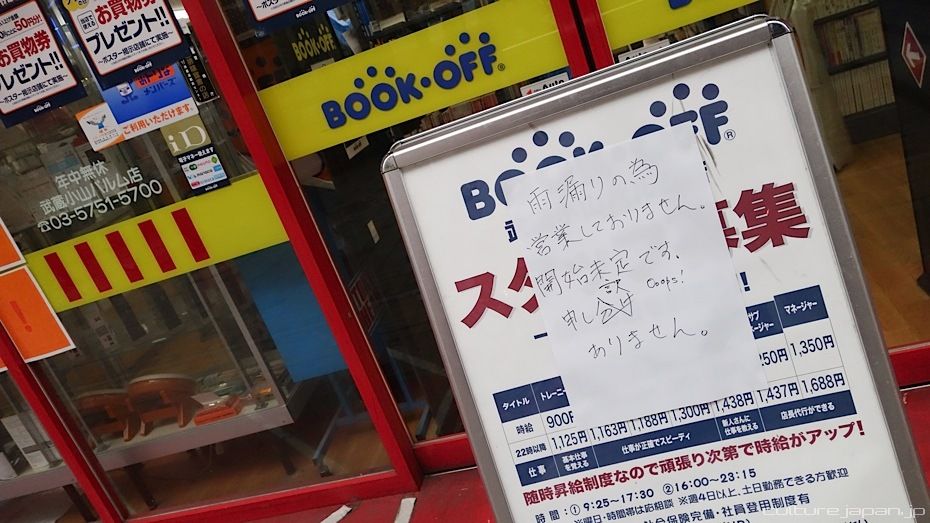 お買物券
プレゼント!!
～ポスター掲示店舗にて実施～
50円分!
お買物券
プレゼント!!
～ポスター掲示店舗にて実施～
ご利用いただけます。
iD
BOOK・OFF
BOOK・OFF®
年中無休
武蔵小山パルム店
☎03-5751-5700
BOOK・OFF®
雨漏りの為
営業しておりません。
開始未定です。
申し訳
Ooops!
ありません。
スタ
募集
タイトル
マネージャー
時給
900円
1,163円 1,188円 1,300円 1,438円 1,437円 1,688円
250円 1,350円
22時以降
1,125円
仕事
基本仕事を教える
仕事が正確でスピーディ
新人さんに仕事を教える
店長代行ができる
随時昇給制度なので頑張り次第で時給がアップ!
時間:①9:25～17:30 ②16:00～23:15
※曜日・時間帯は応相談 ※週4日以上、土日勤務できる方歓迎
社会保険完備・社員登用制度有
culturejapan.jp